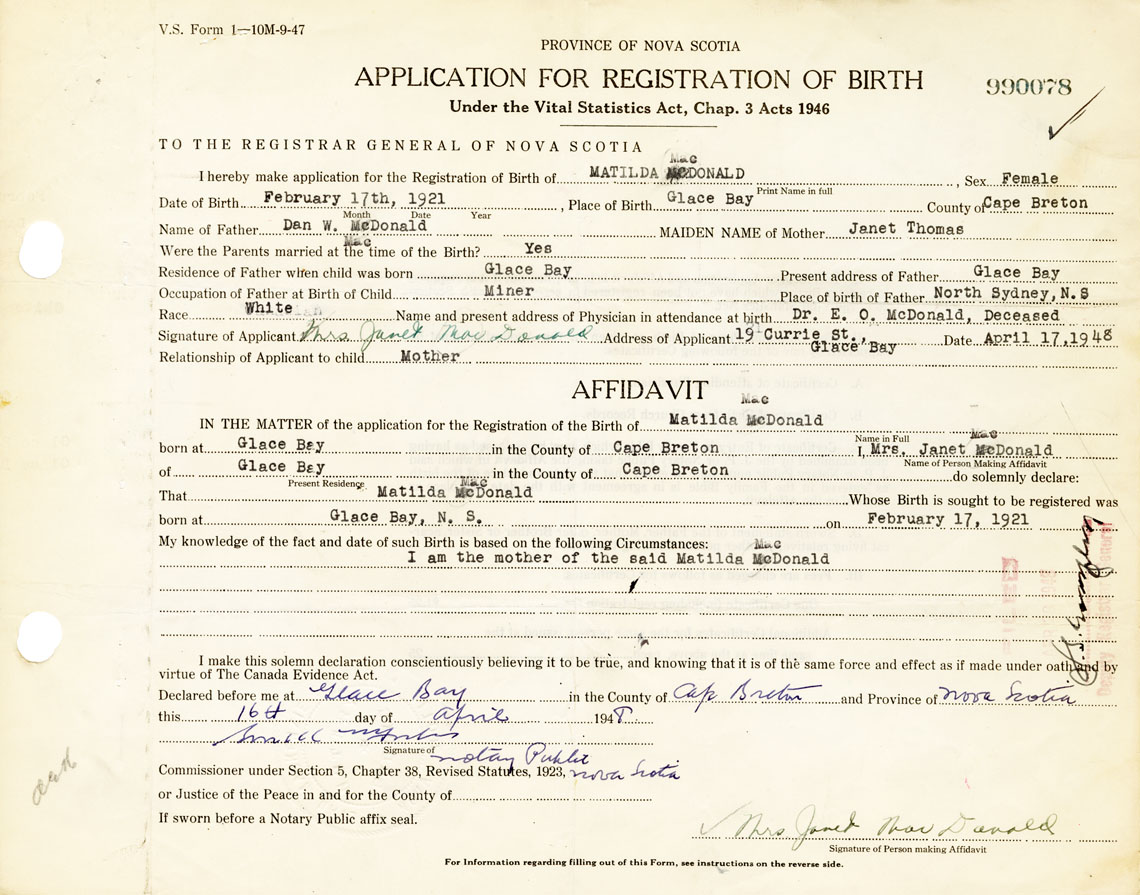 V.S. Form 1—10M-9-47
PROVINCE OF NOVA SCOTIA
APPLICATION FOR REGISTRATION OF BIRTH
990078
Under the Vital Statistics Act, Chap. 3 Acts 1946
TO THE REGISTRAR GENERAL OF NOVA SCOTIA
Mac
I hereby make application for the Registration of Birth of MATILDA McDONALD, Sex Female
Print Name in full
Date of Birth February 17th, 1921, Place of Birth Glace Bay County of Cape Breton
Month Date Year
Name of Father Dan W. McDonald MAIDEN NAME of Mother Janet Thomas
Mac
Were the Parents married at the time of the Birth? Yes
Residence of Father when child was born Glace Bay Present address of Father Glace Bay
Occupation of Father at Birth of Child Miner Place of birth of Father North Sydney, N.S
Race White Name and present address of Physician in attendance at birth Dr. E. O. McDonald, Deceased
Signature of Applicant Mrs Janet Mac Donald Address of Applicant 19 Currie St., Date April 17, 1948
Glace Bay
Relationship of Applicant to child Mother
AFFIDAVIT
Mac
IN THE MATTER of the application for the Registration of the Birth of Matilda McDonald
Name in Full
Mac
born at Glace Bay in the County of Cape Breton I, Mrs. Janet McDonald
Name of Person Making Affidavit
of Glace Bay in the County of Cape Breton do solemnly declare:
Present Residence
Mac
That Matilda McDonald Whose Birth is sought to be registered was
born at Glace Bay, N. S. on February 17, 1921
My knowledge of the fact and date of such Birth is based on the following Circumstances:
Mac
I am the mother of the said Matilda McDonald
I make this solemn declaration conscientiously believing it to be true, and knowing that it is of the same force and effect as if made under oath and by
virtue of The Canada Evidence Act.
Declared before me at Glace Bay in the County of Cap Breton and Province of Nova Scotia
this 16th day of April 1948
Signature of
Notary Public
Commissioner under Section 5, Chapter 38, Revised Statutes, 1923, Nova Scotia
or Justice of the Peace in and for the County of
If sworn before a Notary Public affix seal.
Mrs Janet Mac Donald
Signature of Person making Affidavit
For Information regarding filling out of this Form, see instructions on the reverse side.